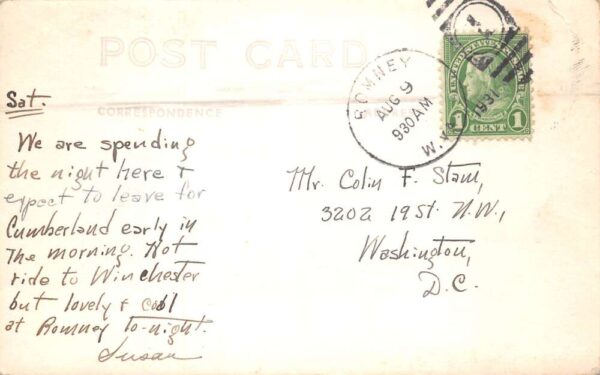 POST CARD
CORRESPONDENCE
Sat.
We are spending
the night here &
expect to leave for
Cumberland early in
the morning. Hot
ride to Winchester
but lovely & cool
at Romney to-night.
Susan
ROMNEY
AUG 9
930 AM
1931
W.V
UNITED STATES POSTAGE
1 CENT 1
Mr. Colin F. Stam,
3202 19 St. N.W.,
Washington,
D.C.